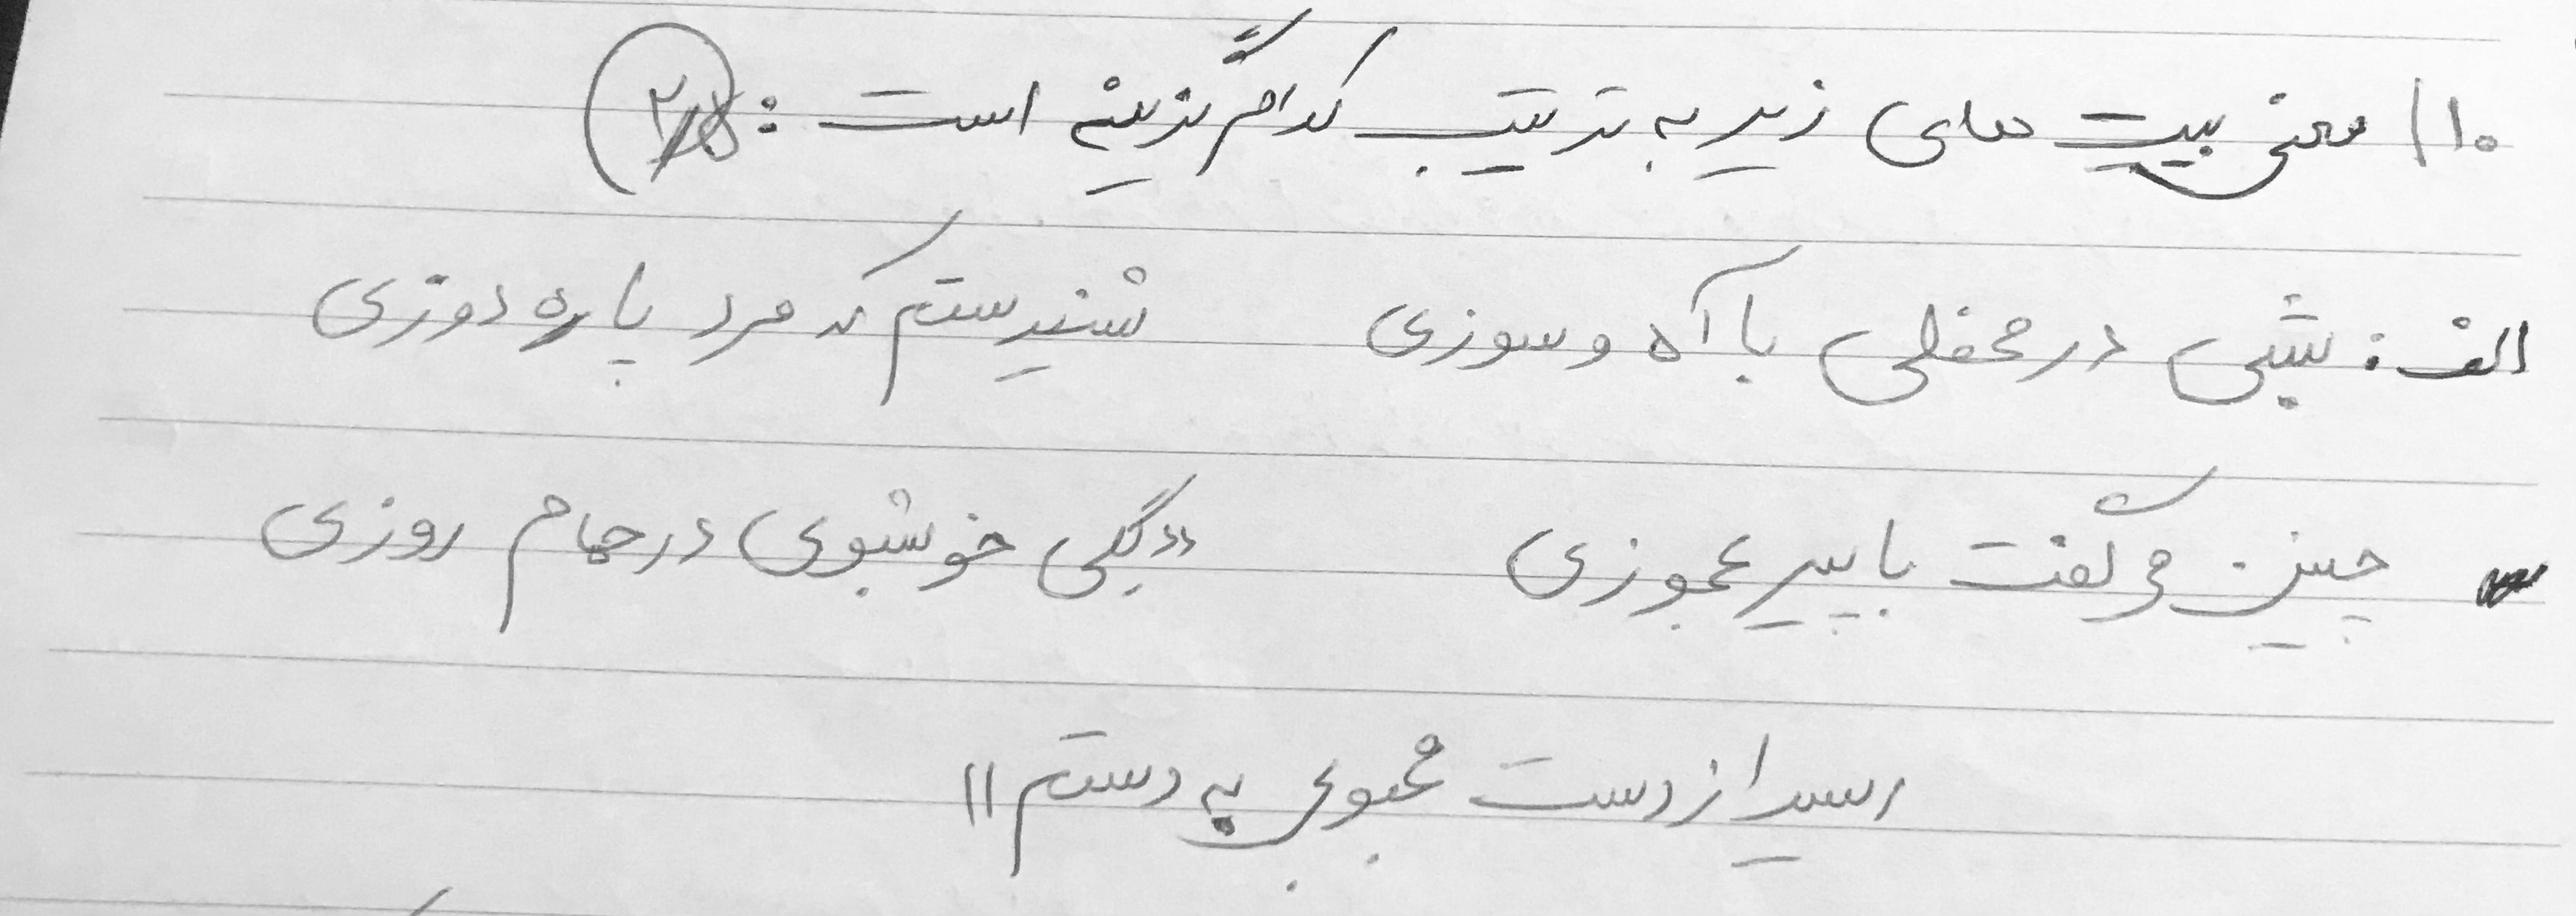 ۱۰) معنی بیت های زیر به ترتیب کدام گزینه است :
الف : شبی در محفلی با آه و سوزی شنیدستم که مرد پاره دوزی
چنین می گفت با پیر عجوزی «گلی خوشبوی در حمام روزی
رسید از دست محبوبی به دستم»